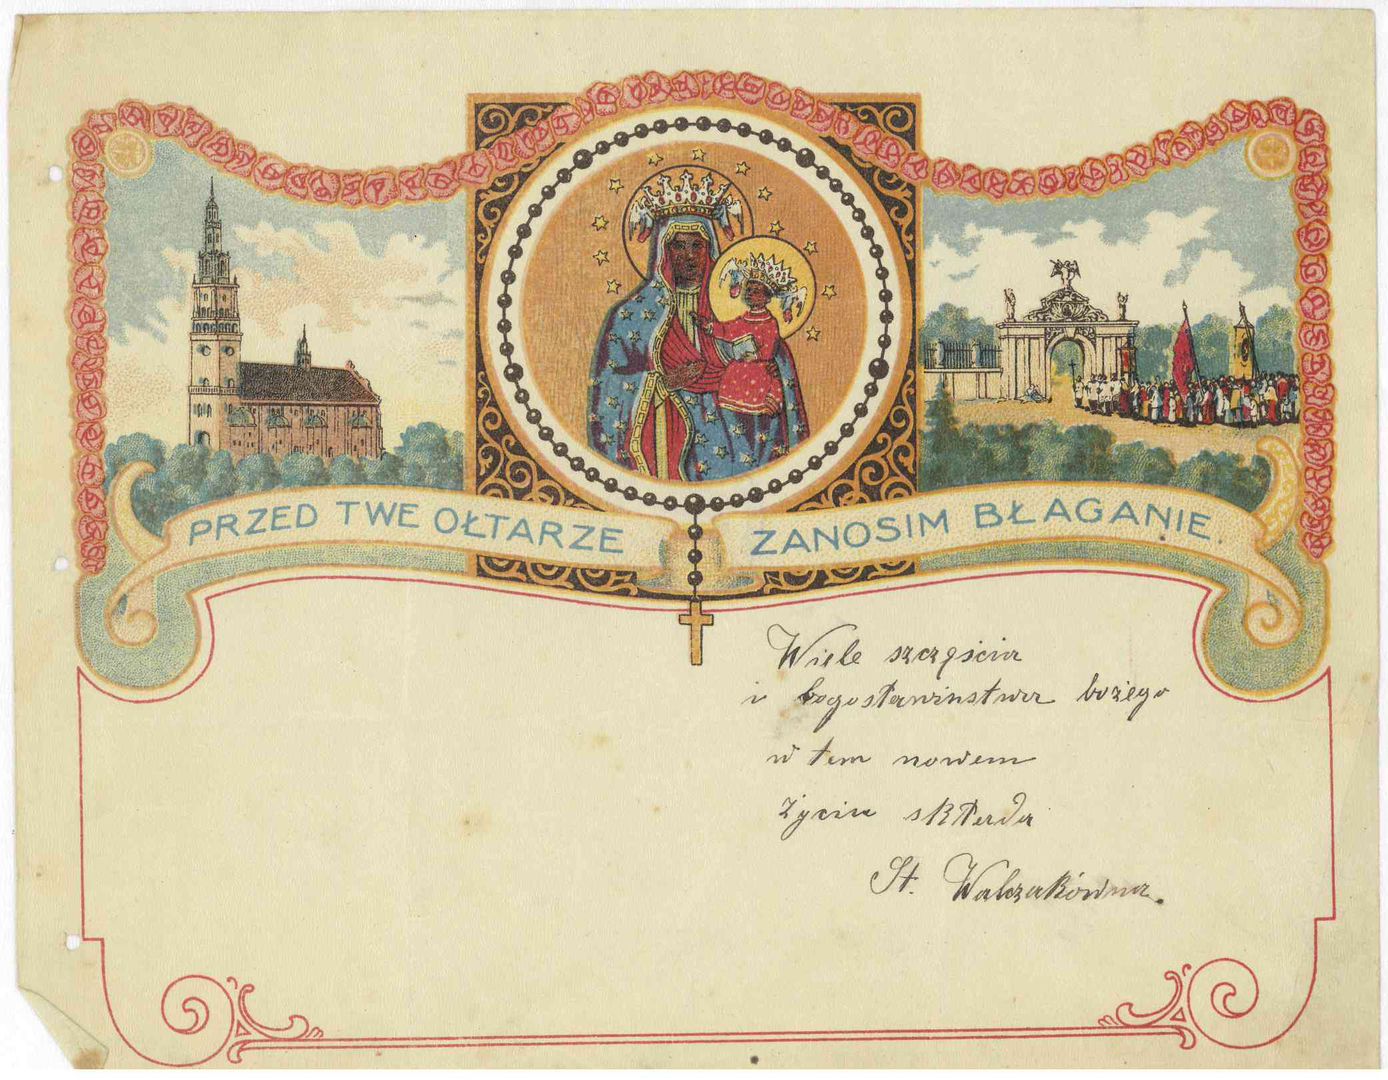 PRZED TWE OŁTARZE ZANOSIM BŁAGANIE.
Wiele szczęścia
i bogosławinstwa bożego
w tem nowem
życiu składa
St. Walczakówna.